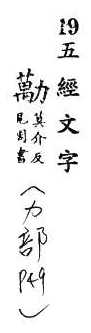 19五經文字
勱莫介反見周書
（力部P49）